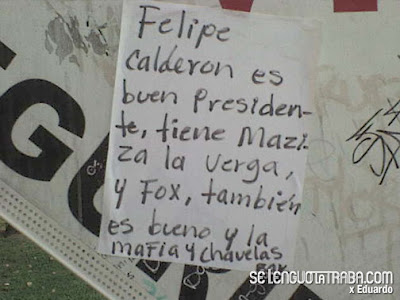 Felipe
calderon es
buen Presiden-
te, tiene Mazi-
za la verga,
y Fox, también
es bueno y la
mafia y chavelas
SELENGUOTATRABA.COM
x Eduardo